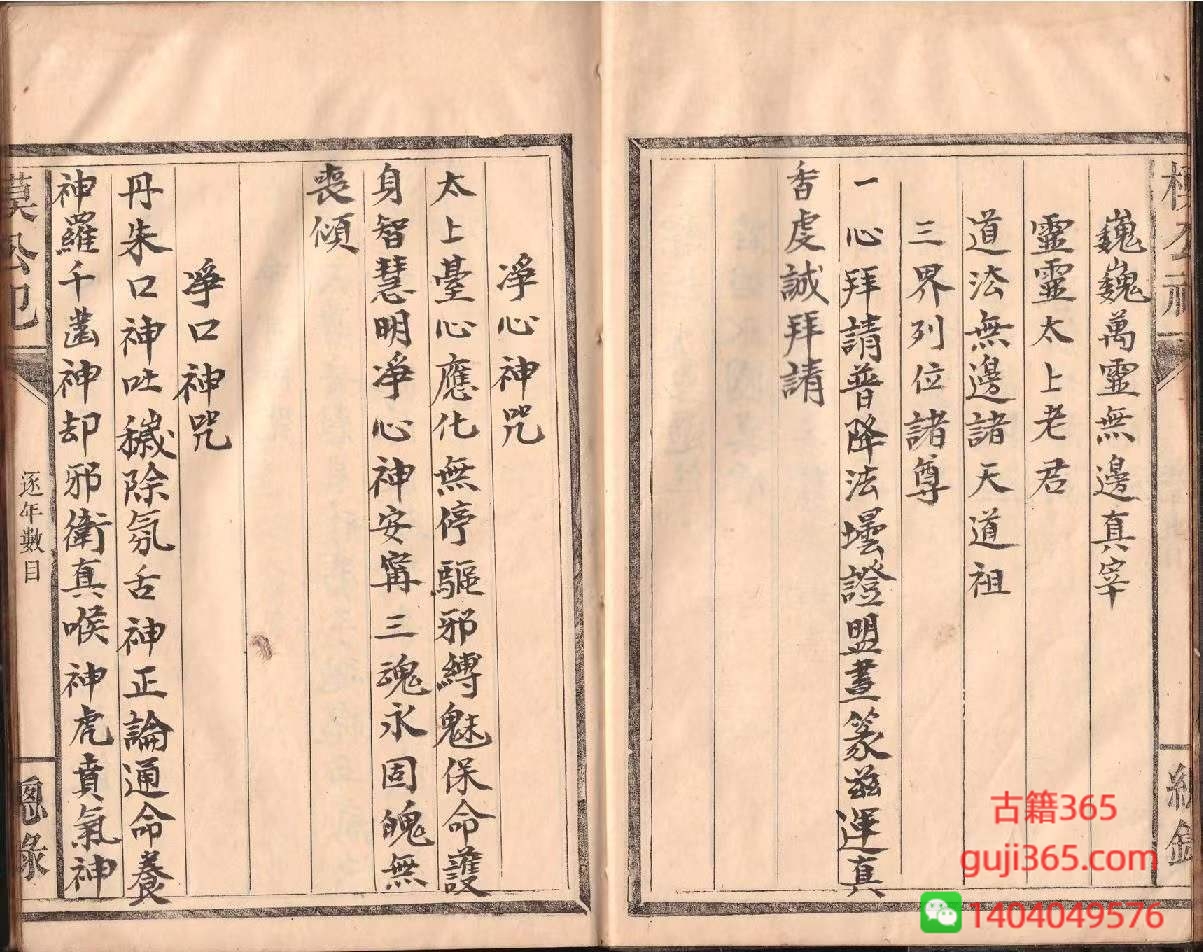 巍巍萬靈無邊真宰
靈靈太上老君
道法無邊諸天道祖
三界列位諸尊
一心拜請普降法壇證盟晝篆兹運真
香虔誠拜請
凈心神咒
太上臺心應化無停驅邪縛魅保命護
身智慧明凈心神安寗三魂永固魄無
喪傾
凈口神咒
丹朱口神吐穢除氛舌神正論通命養
神羅千齒神却邪衛真喉神虎賁氣神
逐年數目
總錄
古籍365
guji365.com
1404049576